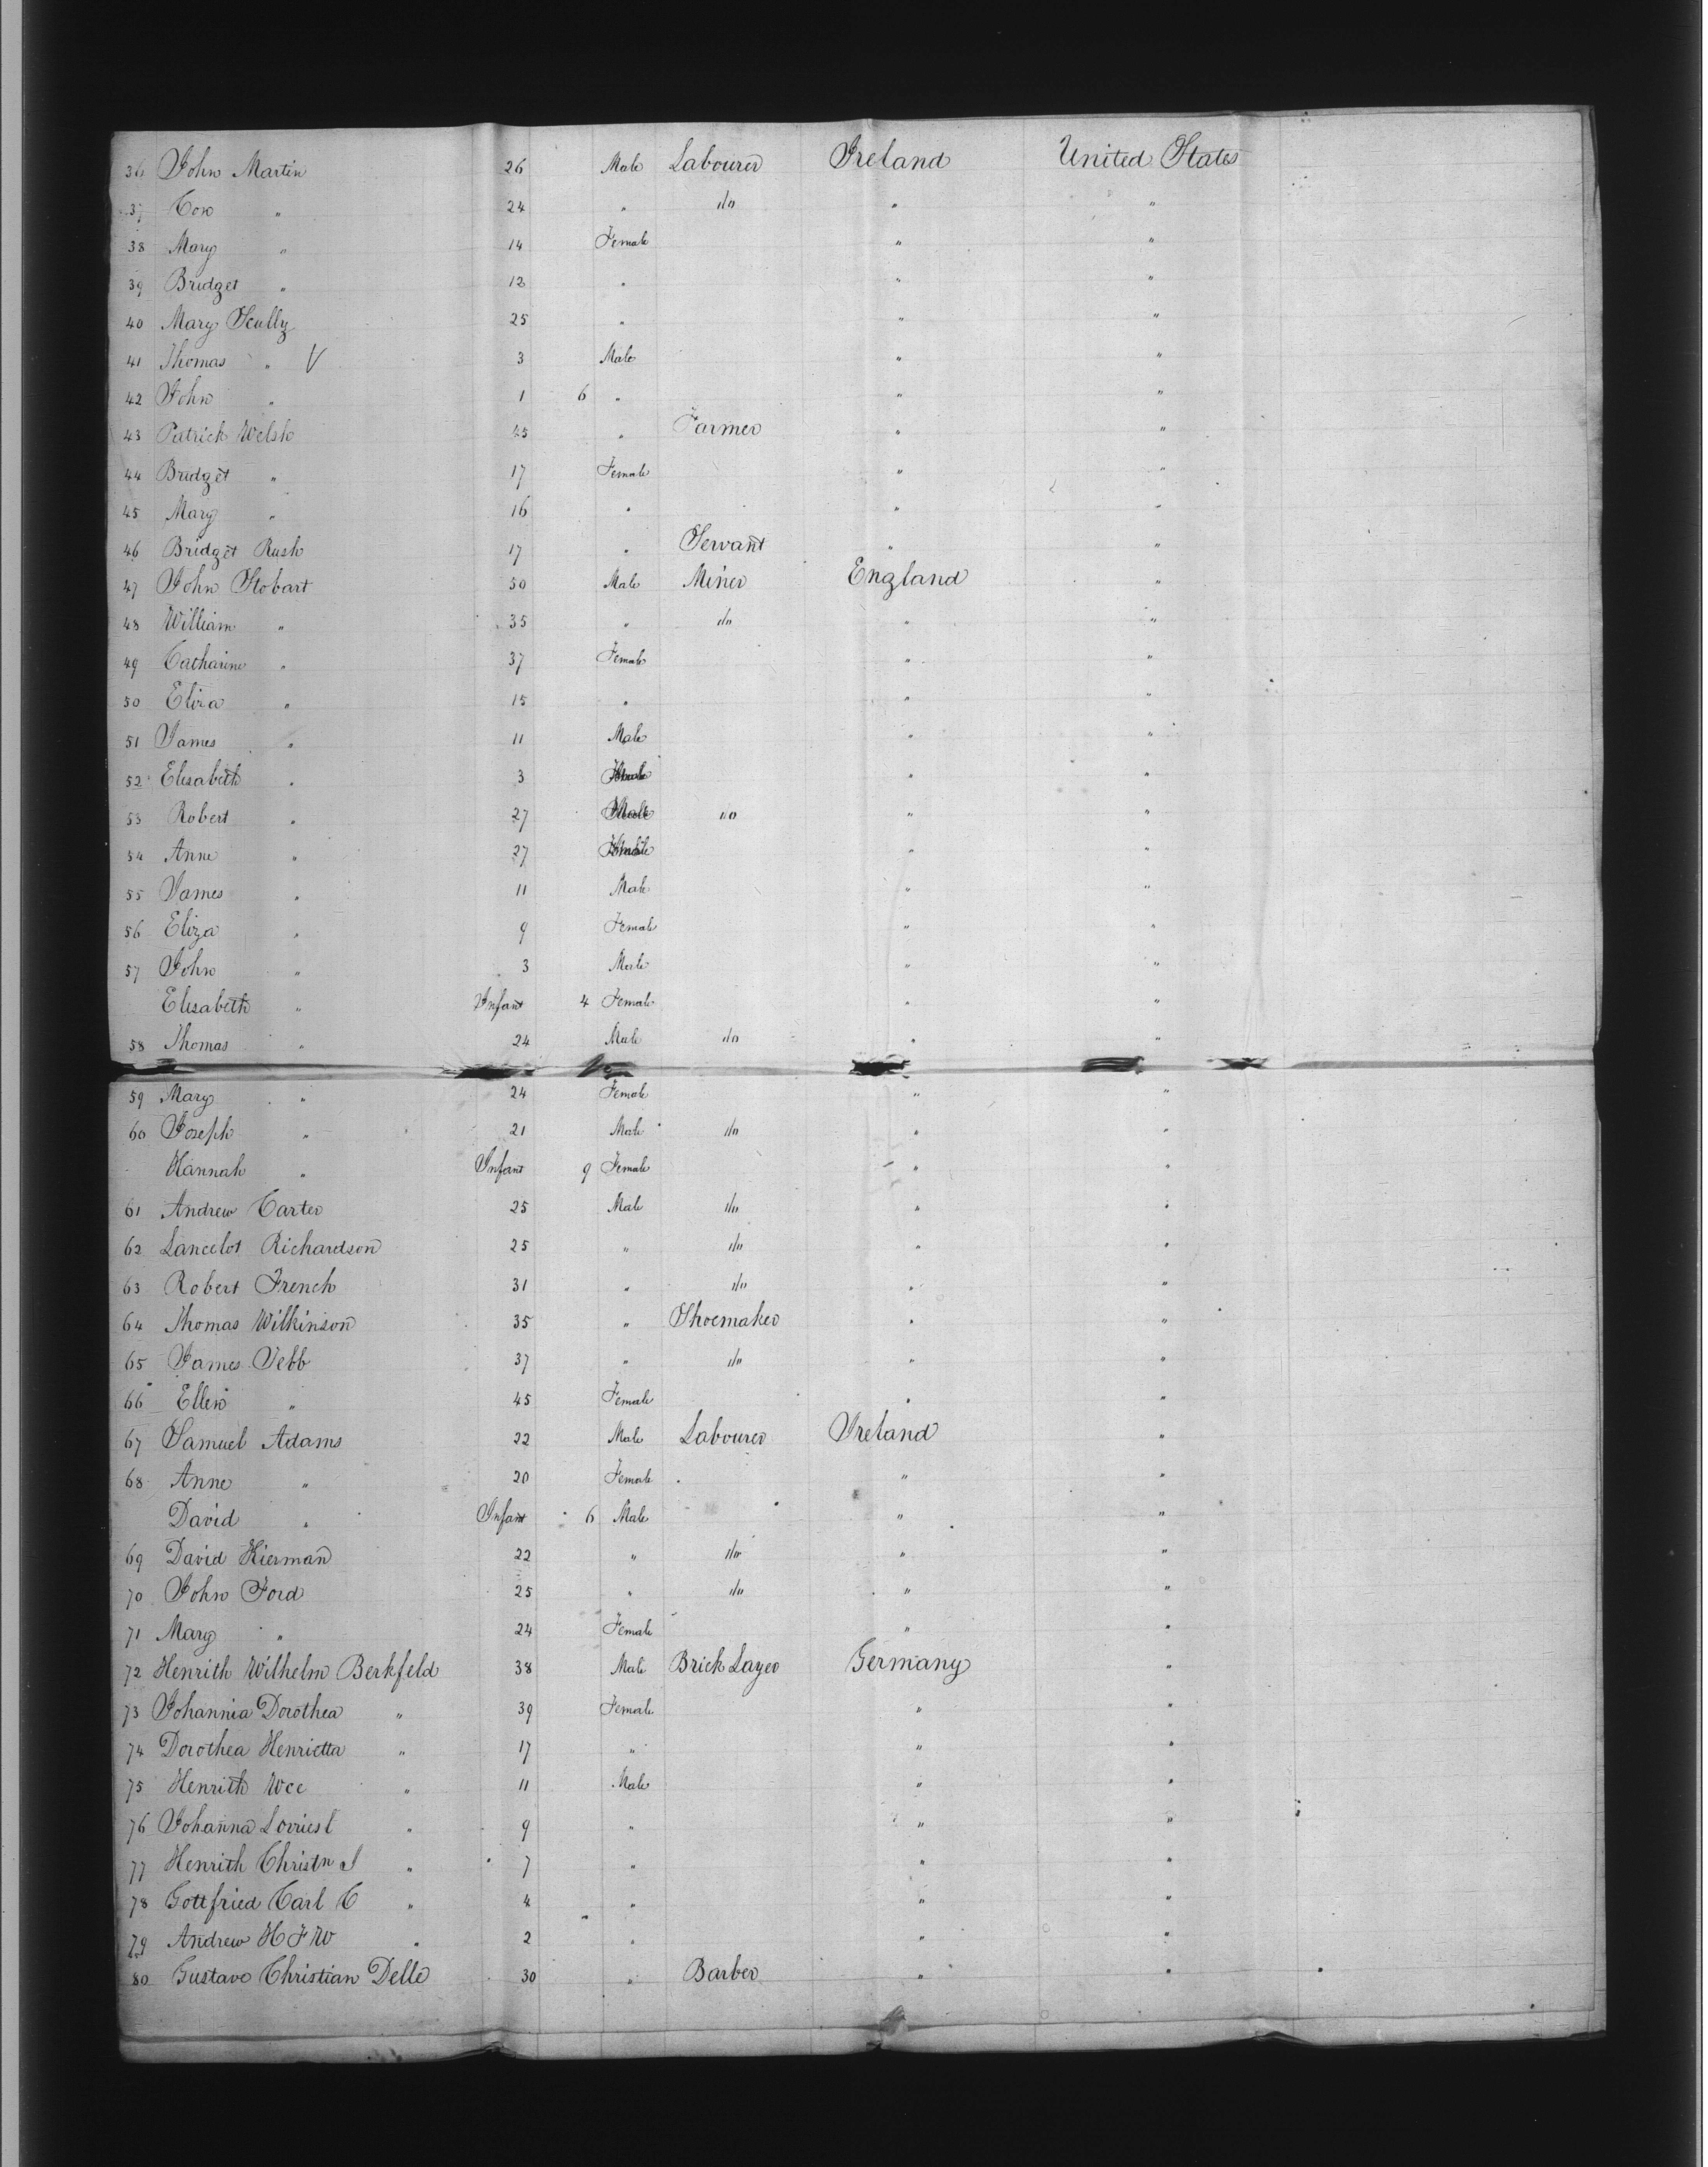 36 John Martin 26 Male Labourer Ireland United States
37 Con " 24 " do " "
38 Mary " 14 Female " "
39 Bridget " 12 " " "
40 Mary Scully 25 " " "
41 Thomas " V 3 Male " "
42 John " 1 6 " " "
43 Patrick Welsh 45 " Farmer " "
44 Bridget " 17 Female " "
45 Mary " 16 " " "
46 Bridget Rush 17 " Servant " "
47 John Stobart 50 Male Miner England "
48 William " 35 " do " "
49 Catharine " 37 Female " "
50 Eliza " 15 " " "
51 James " 11 Male " "
52 Elisabeth " 3 Female " "
53 Robert " 27 Male do " "
54 Anne " 27 Female " "
55 James " 11 Male " "
56 Eliza " 9 Female " "
57 John " 3 Male " "
Elisabeth " Infant 4 Female " "
58 Thomas " 24 Male do " "
59 Mary " 24 Female " "
60 Joseph " 21 Male do " "
Hannah " Infant 9 Female " "
61 Andrew Carter 25 Male do " "
62 Lancelot Richardson 25 " do " "
63 Robert French 31 " do " "
64 Thomas Wilkinson 35 " Shoemaker " "
65 James Tebb 37 " do " "
66 Ellen " 45 Female " "
67 Samuel Adams 22 Male Labourer Ireland "
68 Anne " 20 Female " "
David " Infant 6 Male " "
69 David Kierman 22 " do " "
70 John Ford 25 " do " "
71 Mary " 24 Female " "
72 Henrith Wilhelm Berkfeld 38 Male Brick Layer Germany "
73 Johannia Dorothea " 39 Female " "
74 Dorothea Henrietta " 17 " " "
75 Henrith " 11 Male " "
76 Johanna " 9 " " "
77 Henrith Christn " 7 " " "
78 Gottfried Carl C " 4 " " "
79 Andrew H F W " 2 " " "
80 Gustave Christian Delle 30 " Barber " "